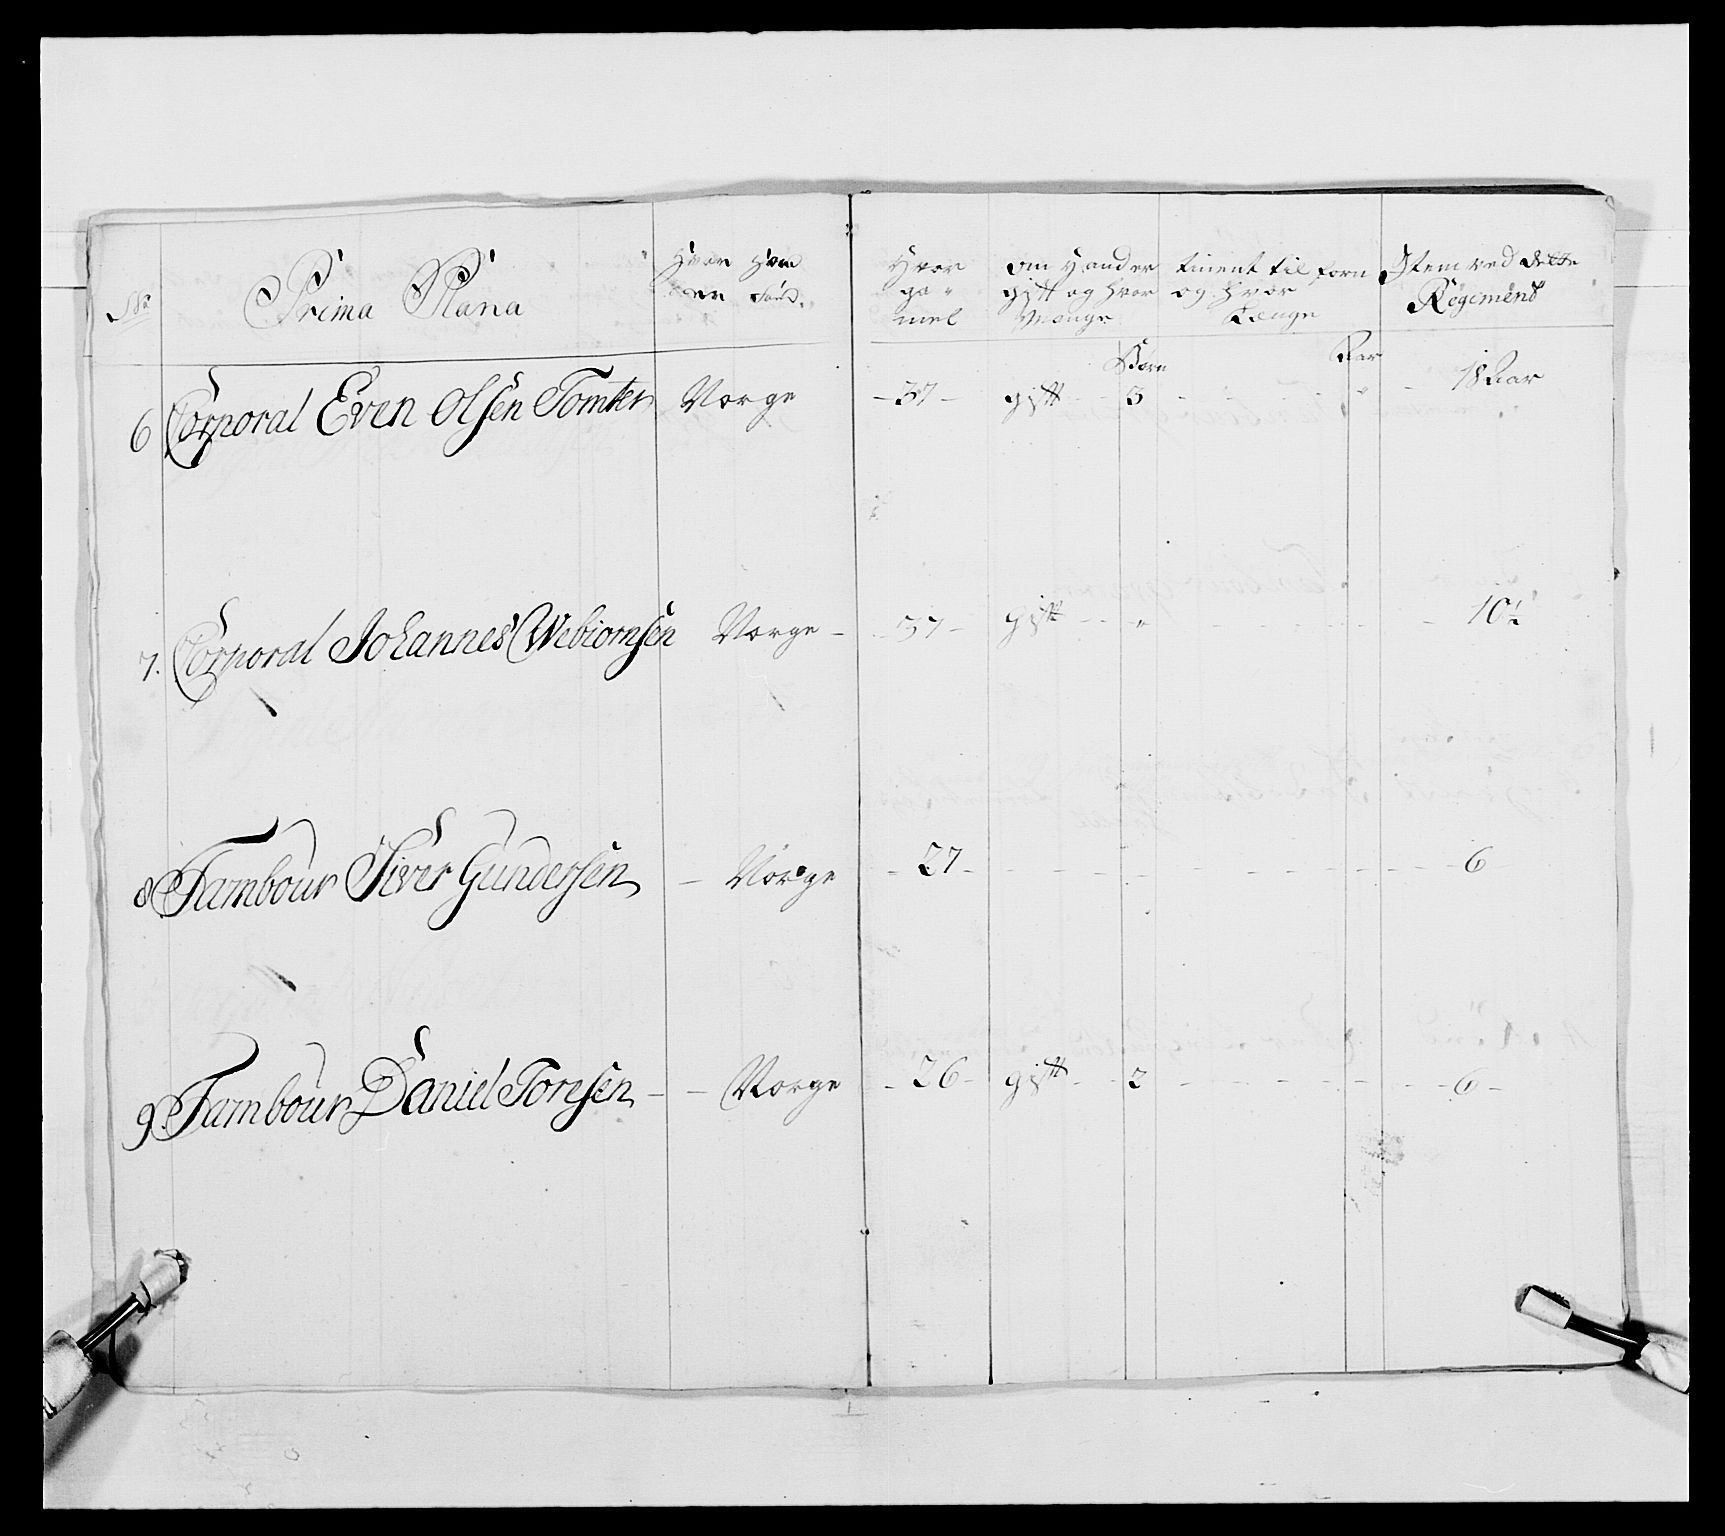 No
Prima Plana
Hvor Hand
er Fød.
Hvor
ga-
mel
om Hand er
gift og hvor
Mange
tient tilforn
og hvor
Længe
Item ved dette
Regiment
Børn
Aar
6 Corporal Even Olsen Tomter Norge - 37 - gift 3 " 18 Aar
7. Corporal Johannes Webiornsen Norge - 37 - gift " 10½
8 Tambour Siver Gundersen - Norge - 27 - - 6 -
9. Tambour Daniel Toresen - - Norge - 26 - gift 2 - 6 -